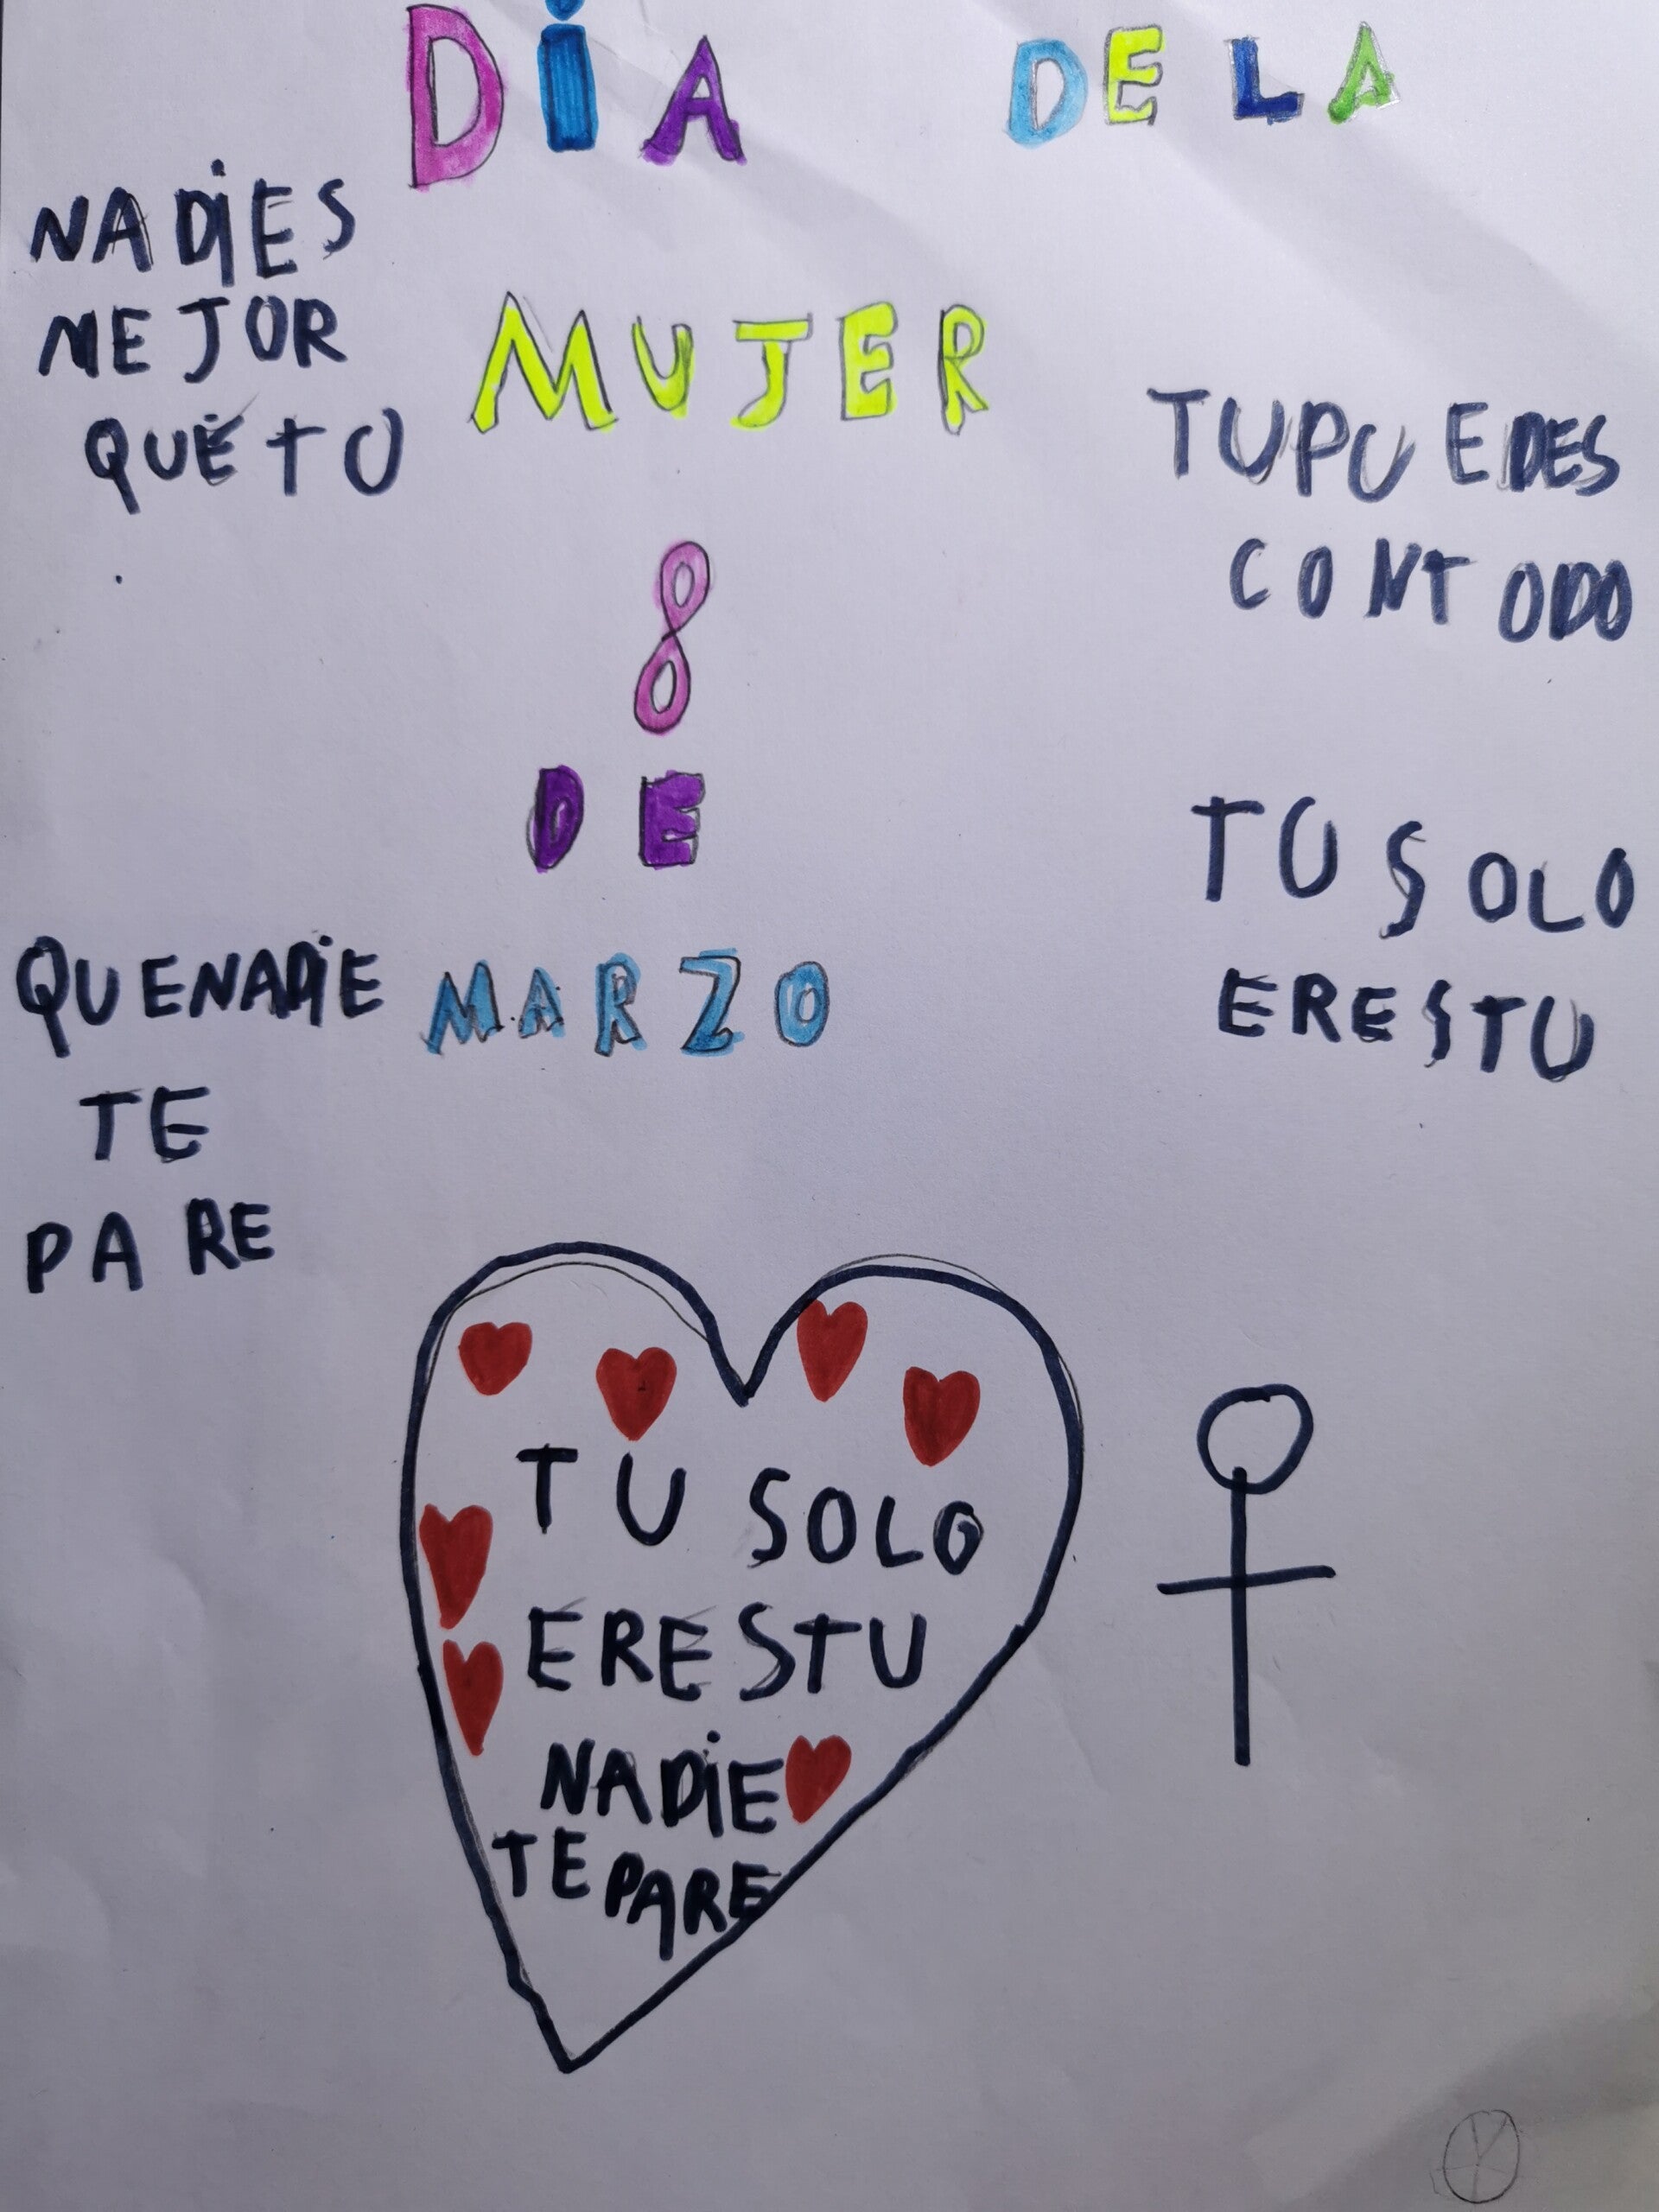 DÍA DE LA
NADIES
MEJOR
QUE TU
MUJER
TUPUEDES
CONTODO
8
DE
MARZO
TU SOLO
ERESTU
QUENADIE
TE
PARE
TU SOLO
ERESTU
NADIE
TEPARE